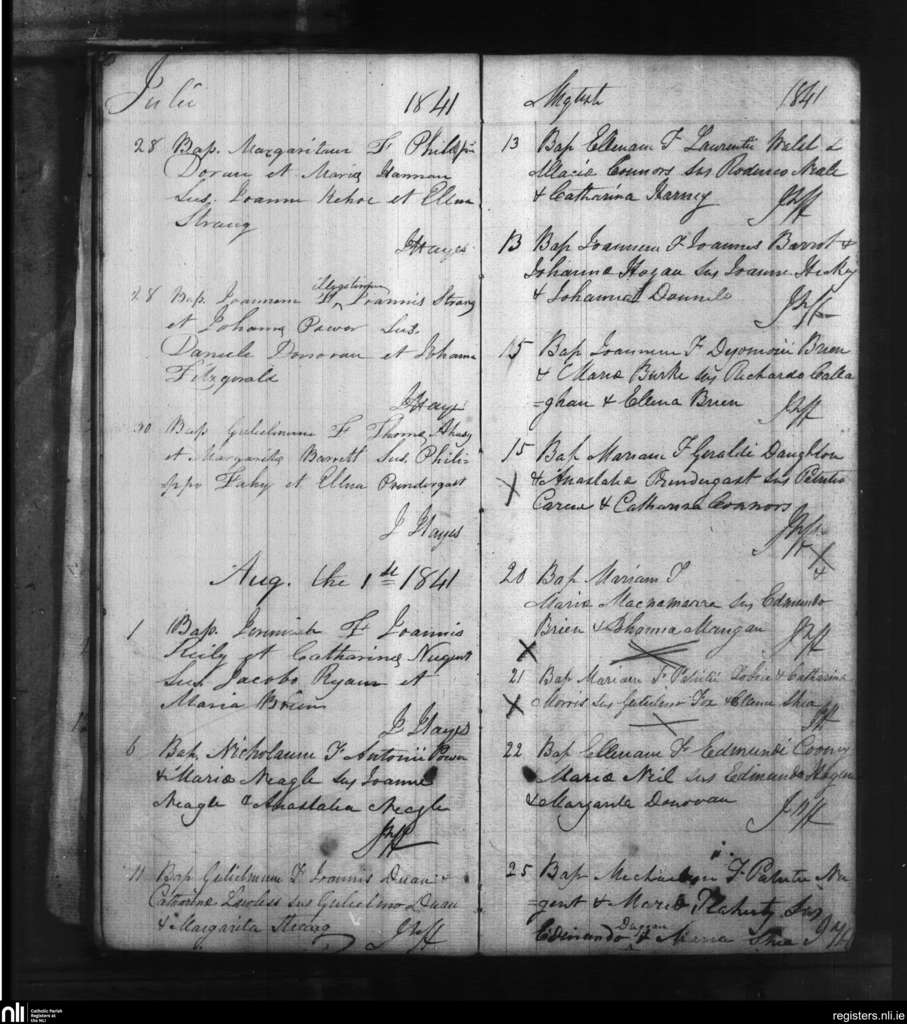 Julii 1841
28 Bap. Margaritam F Philippi
Doran et Maria Hannan
Sus. Joanne Kehoe et Ellena
Strang
J Hayes
28 Bap. Joannem F Joannis Strang
et Johanna Power Sus.
Daniele Donovan et Johanna
Fitzgerald
J Hayes
30 Bap Gulielmum F Thoma
et Margarita Barrett Sus. Phili-
ppo Fahy et Ellena Prendergast
J Hayes
Aug. the 1st 1841
1 Bap. Jeremiah F Joannis
Reily et Catharina Nugent
Sus Jacobo Ryan et
Maria Brien
J Hayes
6 Bap. Nicholaum F Antonii Power
& Maria Neagle sus Joanne
Neagle & Anastatia Neagle
11 Bap Gulielmum F Joannis Duan &
Catherina Lawless sus Gulielmo Duan
& Margarita Strang
1841
13 Bap Ellenam F Laurentii Welsh &
Maria Connors sus Roderico Neale
& Catharina Harney
13 Bap Joannem F Joannis Barrot &
Johanna Hogan sus Joanne Hickey
& Johanna Donnelo
15 Bap Joannem F Brien
& Maria Burke sus Richardo Calla
=ghan & Ellena Brien
15 Bap Mariam F Geraldi Daughton
& Anastatia Prendergast sus Patritio
Carew & Catharina Connors
20 Bap Mariam F
Maria Macnamarra sus Edmundo
Brien & Johanna Mangan
21 Bap Mariam F Patritii & Catharina
Morris sus Gulielmo Fox & Ellena Shea
22 Bap Ellenam F Edmundi Cooney
Maria Neil sus Edmundo Hogan
& Margarita Donovan
25 Bap Michaelem F Patritii Nu
=gent & Maria Flaherty sus
Edmundo Duggan & Maria Shea
nli
Catholic Parish
Registers at
the NLI
registers.nli.ie